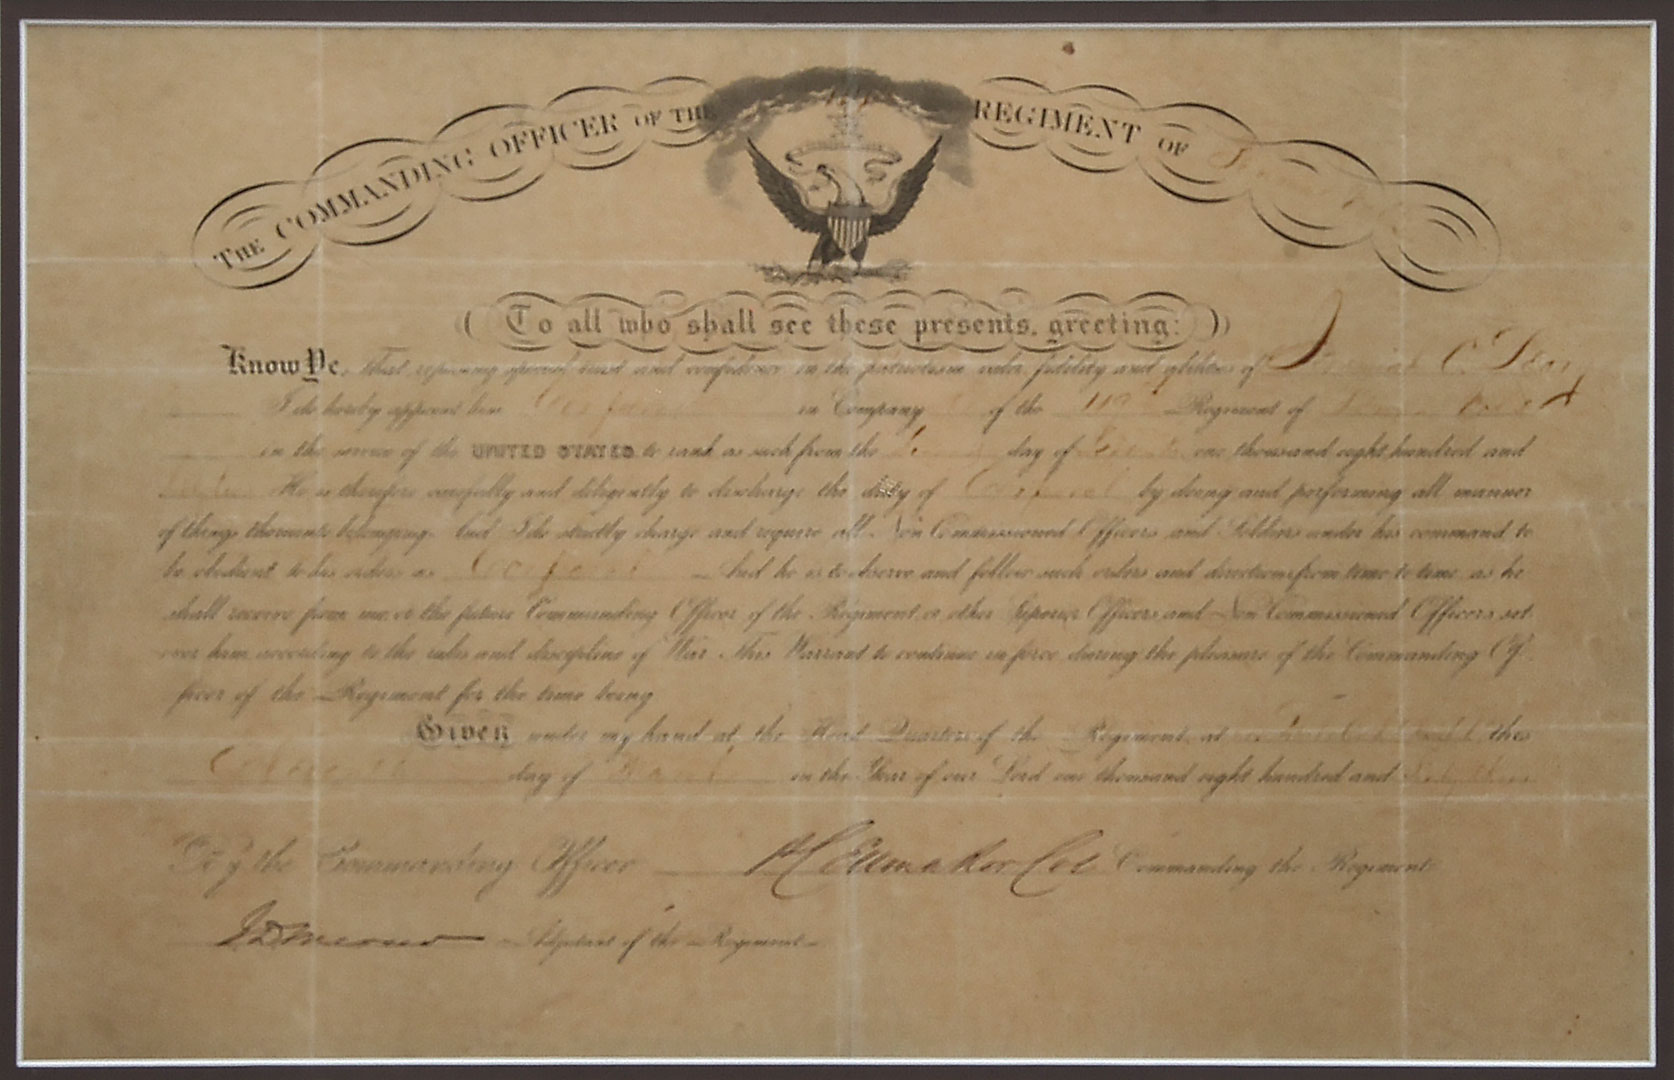 THE COMMANDING OFFICER OF THE REGIMENT OF
To all who shall see these presents, greeting:
Know Ye, That, reposing special trust and confidence in the patriotism, valor, fidelity and abilities of C.
I do hereby appoint him Corporal in Company of the 119 Regiment of
in the service of the UNITED STATES to rank as such from the day of one thousand eight hundred and
He is therefore carefully and diligently to discharge the duty of Corporal by doing and performing all manner
of things thereunto belonging. And I do strictly charge and require all Non Commissioned Officers and Soldiers under his command to
be obedient to his orders as Corporal And he is to observe and follow such orders and directions from time to time, as he
shall receive from me, or the future Commanding Officer of the Regiment, or other Superior Officers and Non Commissioned Officers set
over him, according to the rules and discipline of War. This Warrant to continue in force during the pleasure of the Commanding Of-
ficer of the Regiment for the time being.
Given under my hand at the Head Quarters of the Regiment, at this
day of March in the Year of our Lord one thousand eight hundred and
By the Commanding Officer Ellmaker Col Commanding the Regiment
Adjutant of the Regiment